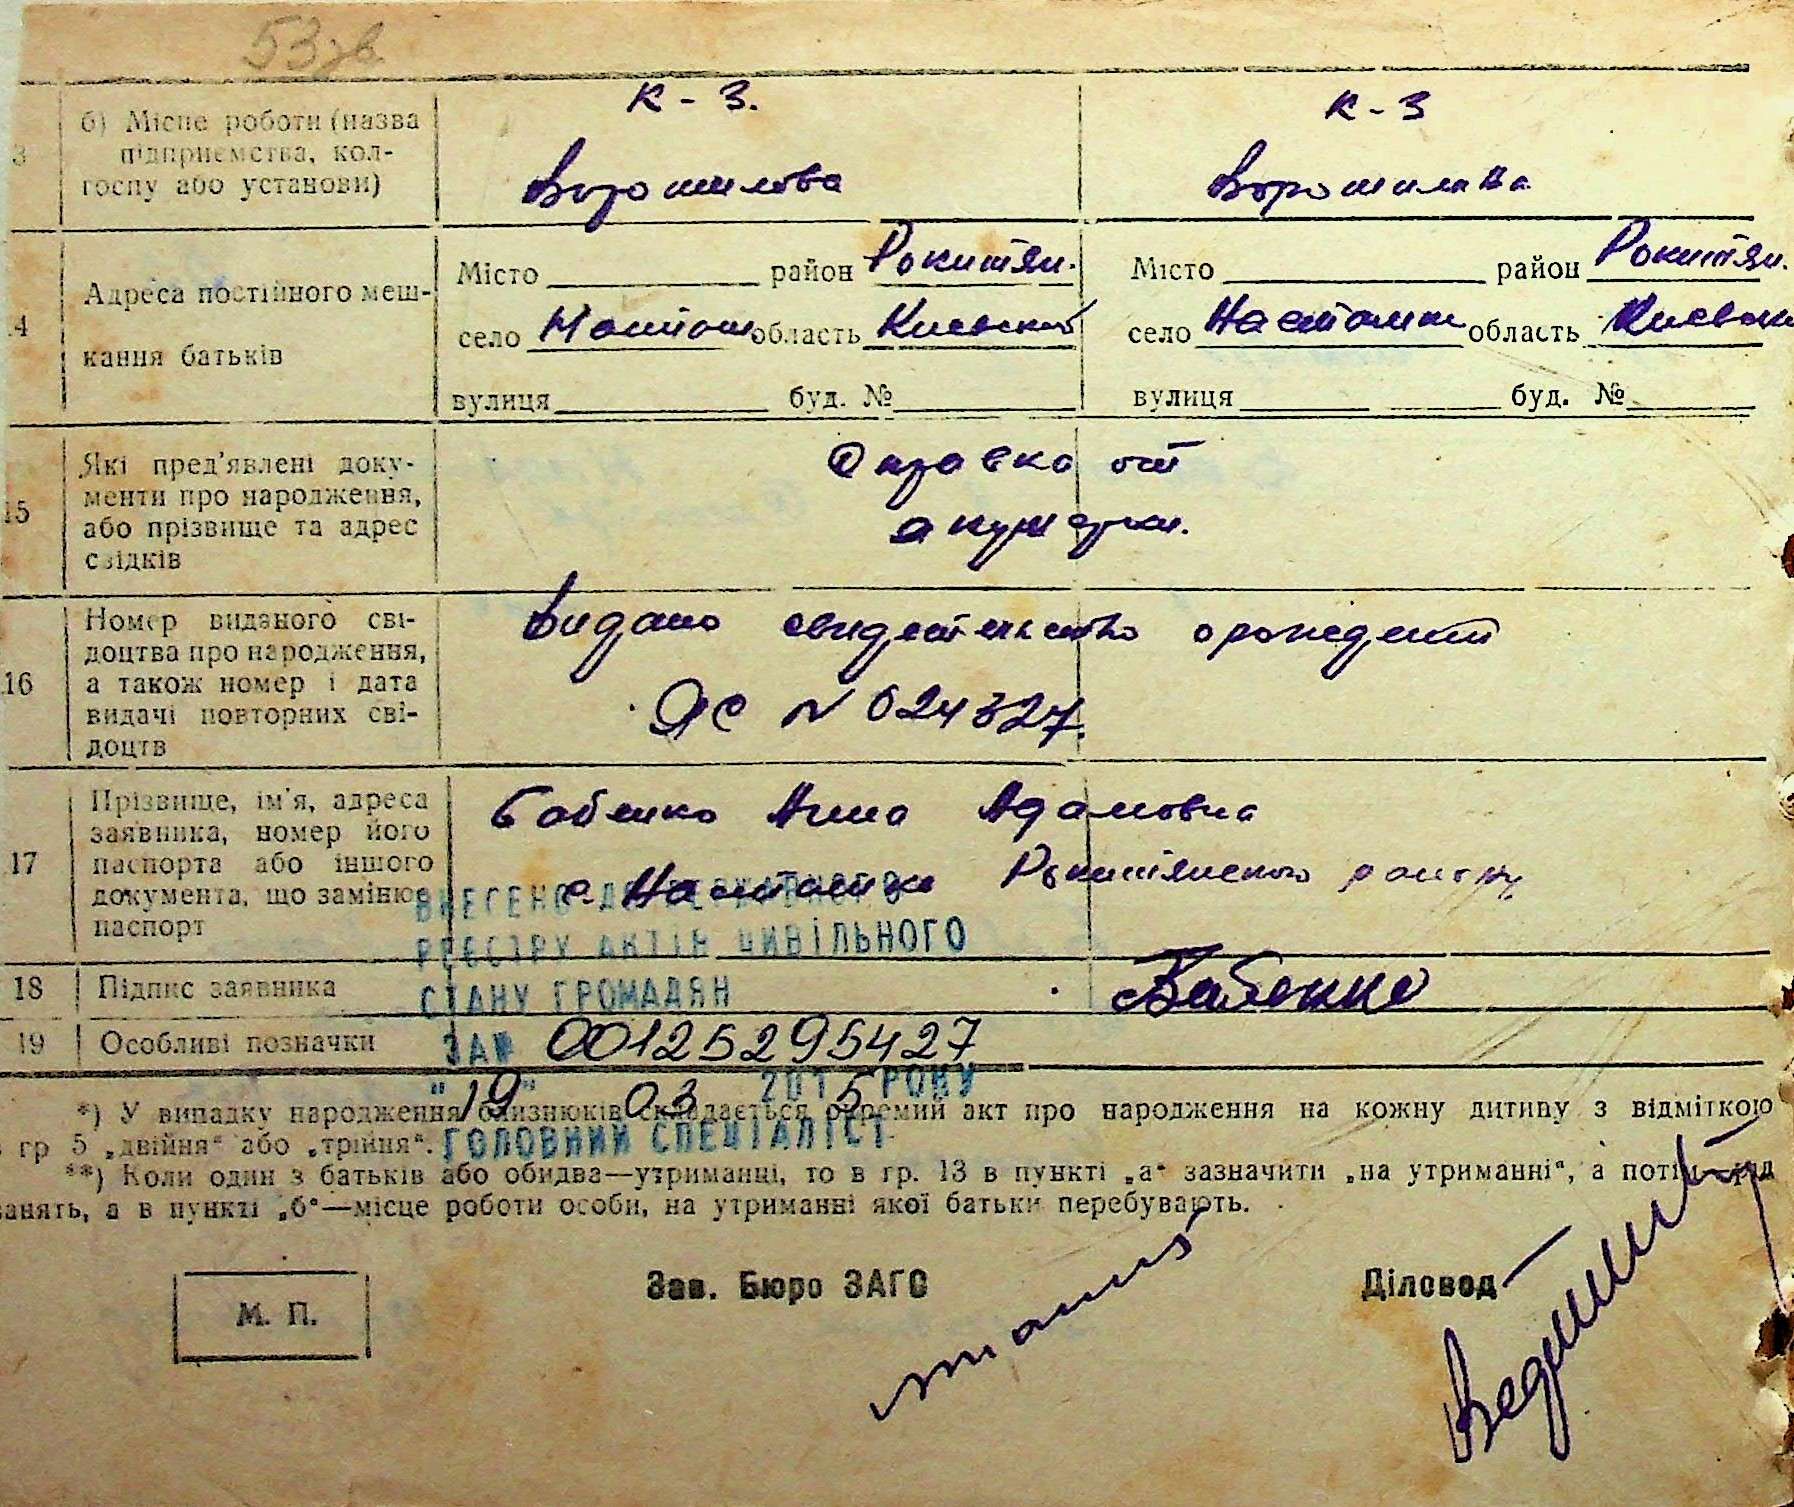 53 зв.
К - З. К - З
13 б) Місце роботи (назва
підприємства, кол-
госпу або установи)
Ворошилова Ворошилова
14 Адреса постійного меш-
кання батьків
Місто район Рокитян. Місто район Рокитян.
село область Киевской село область
вулиця буд. № вулиця буд. №
15 Які пред'явлені доку-
менти про народження,
або прізвище та адрес
свідків
Справка от
акушерки.
16 Номер виданого сві-
доцтва про народження,
а також номер і дата
видачі повторних сві-
доцтв
Видано свидетельство о рождении
ЯС № 024327.
17 Прізвище, ім'я, адреса
заявника, номер його
паспорта або іншого
документа, що замінює
паспорт
Бабенко Анна Адамовна
с. Насташка Рокитянского району
ВНЕСЕНО ДО ДЕРЖАВНОГО
РЕЄСТРУ АКТІВ ЦИВІЛЬНОГО
СТАНУ ГРОМАДЯН
18 Підпис заявника Бабенко
19 Особливі позначки
ЗА № 00125295427
"19" 03 2015 РОКУ
ГОЛОВНИЙ СПЕЦІАЛІСТ
*) У випадку народження близнюків складається окремий акт про народження на кожну дитину з відміткою
в гр 5 „двійня“ або „трійня“.
**) Коли один з батьків або обидва—утриманці, то в гр. 13 в пункті „а“ зазначити „на утриманні“, а потім ряд
занять, а в пункті „б“—місце роботи особи, на утриманні якої батьки перебувають.
М. П.
Зав. Бюро ЗАГС Діловод